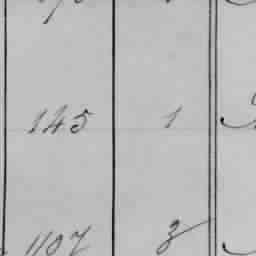 145 1
1107 3